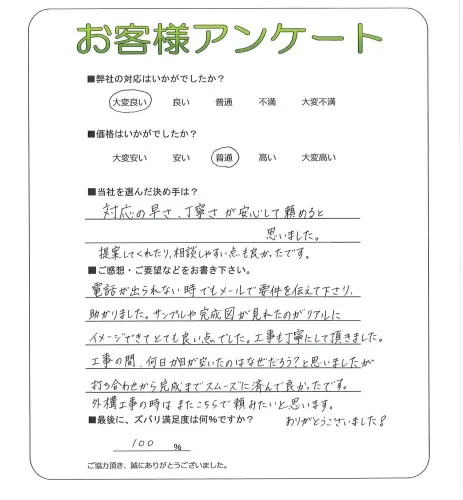 お客様アンケート
■弊社の対応はいかがでしたか?
大変良い 良い 普通 不満 大変不満
■価格はいかがでしたか?
大変安い 安い 普通 高い 大変高い
■当社を選んだ決め手は?
対応の早さ、丁寧さが安心して頼めると
思いました。
提案してくれたり、相談しやすい点も良かったです。
■ご感想・ご要望などをお書き下さい。
電話が出られない時でもメールで要件を伝えて下さり、
助かりました。サンプルや完成図が見れたのがリアルに
イメージできてとても良い点でした。工事も丁寧にして頂きました。
工事の間、何日か日が空いたのはなぜだろう?と思いましたが
打ち合わせから完成までスムーズに済んで良かったです。
外構工事の時はまたこちらで頼みたいと思います。
■最後に、ズバリ満足度は何%ですか?
ありがとうございました!
100 %
ご協力頂き、誠にありがとうございました。